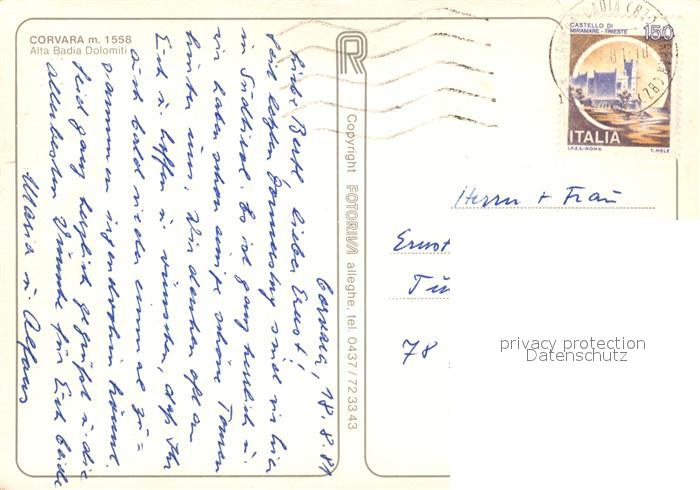 CORVARA m. 1558
Alta Badia Dolomiti
R
CASTELLO DI
MIRAMARE - TRIESTE
150
ITALIA
I.P.Z.S.-ROMA
T. MELE
Copyright FOTORIVA alleghe, tel. 0437/723343
Corvara, 18.8.81
Liebe Beth, lieber Ernst!
Seit letzten Donnerstag sind wir hier
in Südtirol. Es ist ganz herrlich u.
wir haben schon einige schöne Touren
hinter uns. Wir denken oft an
Euch u. hoffen u. wünschen, daß Ihr
auch bald wieder einmal zu=
sammen irgendwohin könnt.
Seid ganz herzlich gegrüßt u. die
allerbesten Wünsche für Euch beide
Maria u. Alfons
Herrn + Frau
Ernst
78
privacy protection
Datenschutz